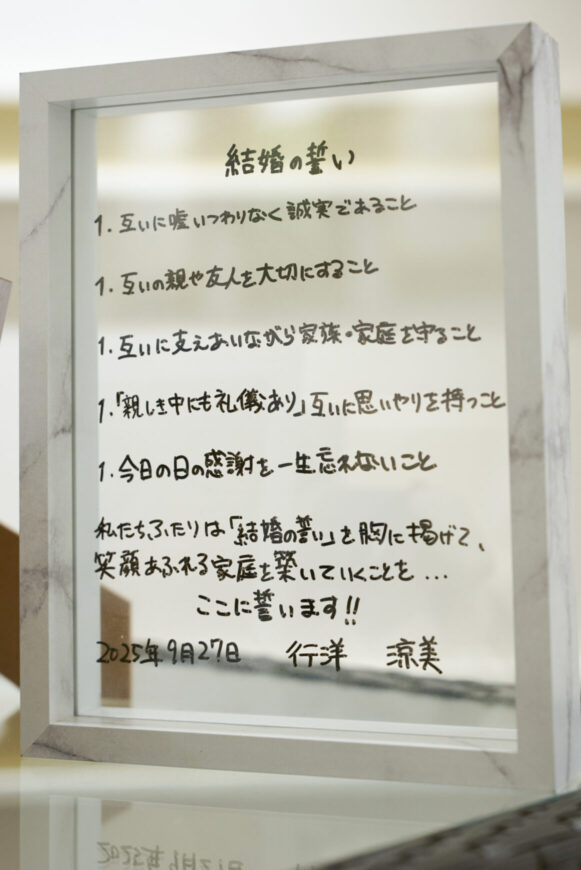 結婚の誓い
1. 互いに嘘いつわりなく誠実であること
1. 互いの親や友人を大切にすること
1. 互いに支えあいながら家族・家庭を守ること
1.「親しき中にも礼儀あり」互いに思いやりを持つこと
1. 今日の日の感謝を一生忘れないこと
私たちふたりは「結婚の誓い」を胸に掲げて、
笑顔あふれる家庭を築いていくことを...
ここに誓います!!
2025年9月27日 行洋 涼美